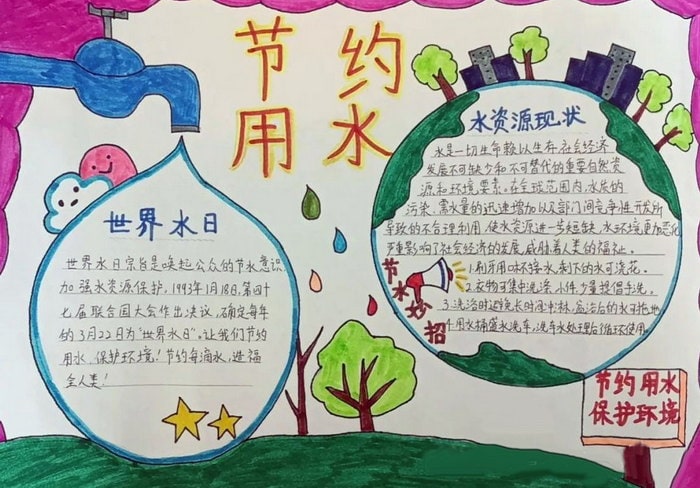 节约
用水
世界水日
世界水日宗旨是唤起公众的节水意识
加强水资源保护。1993年1月18日,第四十
七届联合国大会作出决议,确定每年
的3月22日为“世界水日”。让我们节约
用水,保护环境!节约每滴水,造福
全人类!
水资源现状
水是一切生命赖以生存,社会经济
发展不可缺少和不可替代的重要自然资
源和环境要素。在全球范围内,水质的
污染、需水量的迅速增加以及部门间竞争性开发所
导致的不合理利用,使水资源进一步短缺,水环境更加恶化
严重影响了社会经济的发展,威胁着人类的福祉。
节水妙招
1.刷牙用杯接水,剩下的水可浇花。
2.衣物可集中洗涤,小件少量提倡手洗。
3.洗浴时避免长时间冲淋,盆浴后的水可拖地
4.用水桶盛水洗车,洗车水处理后循环使用。
节约用水
保护环境